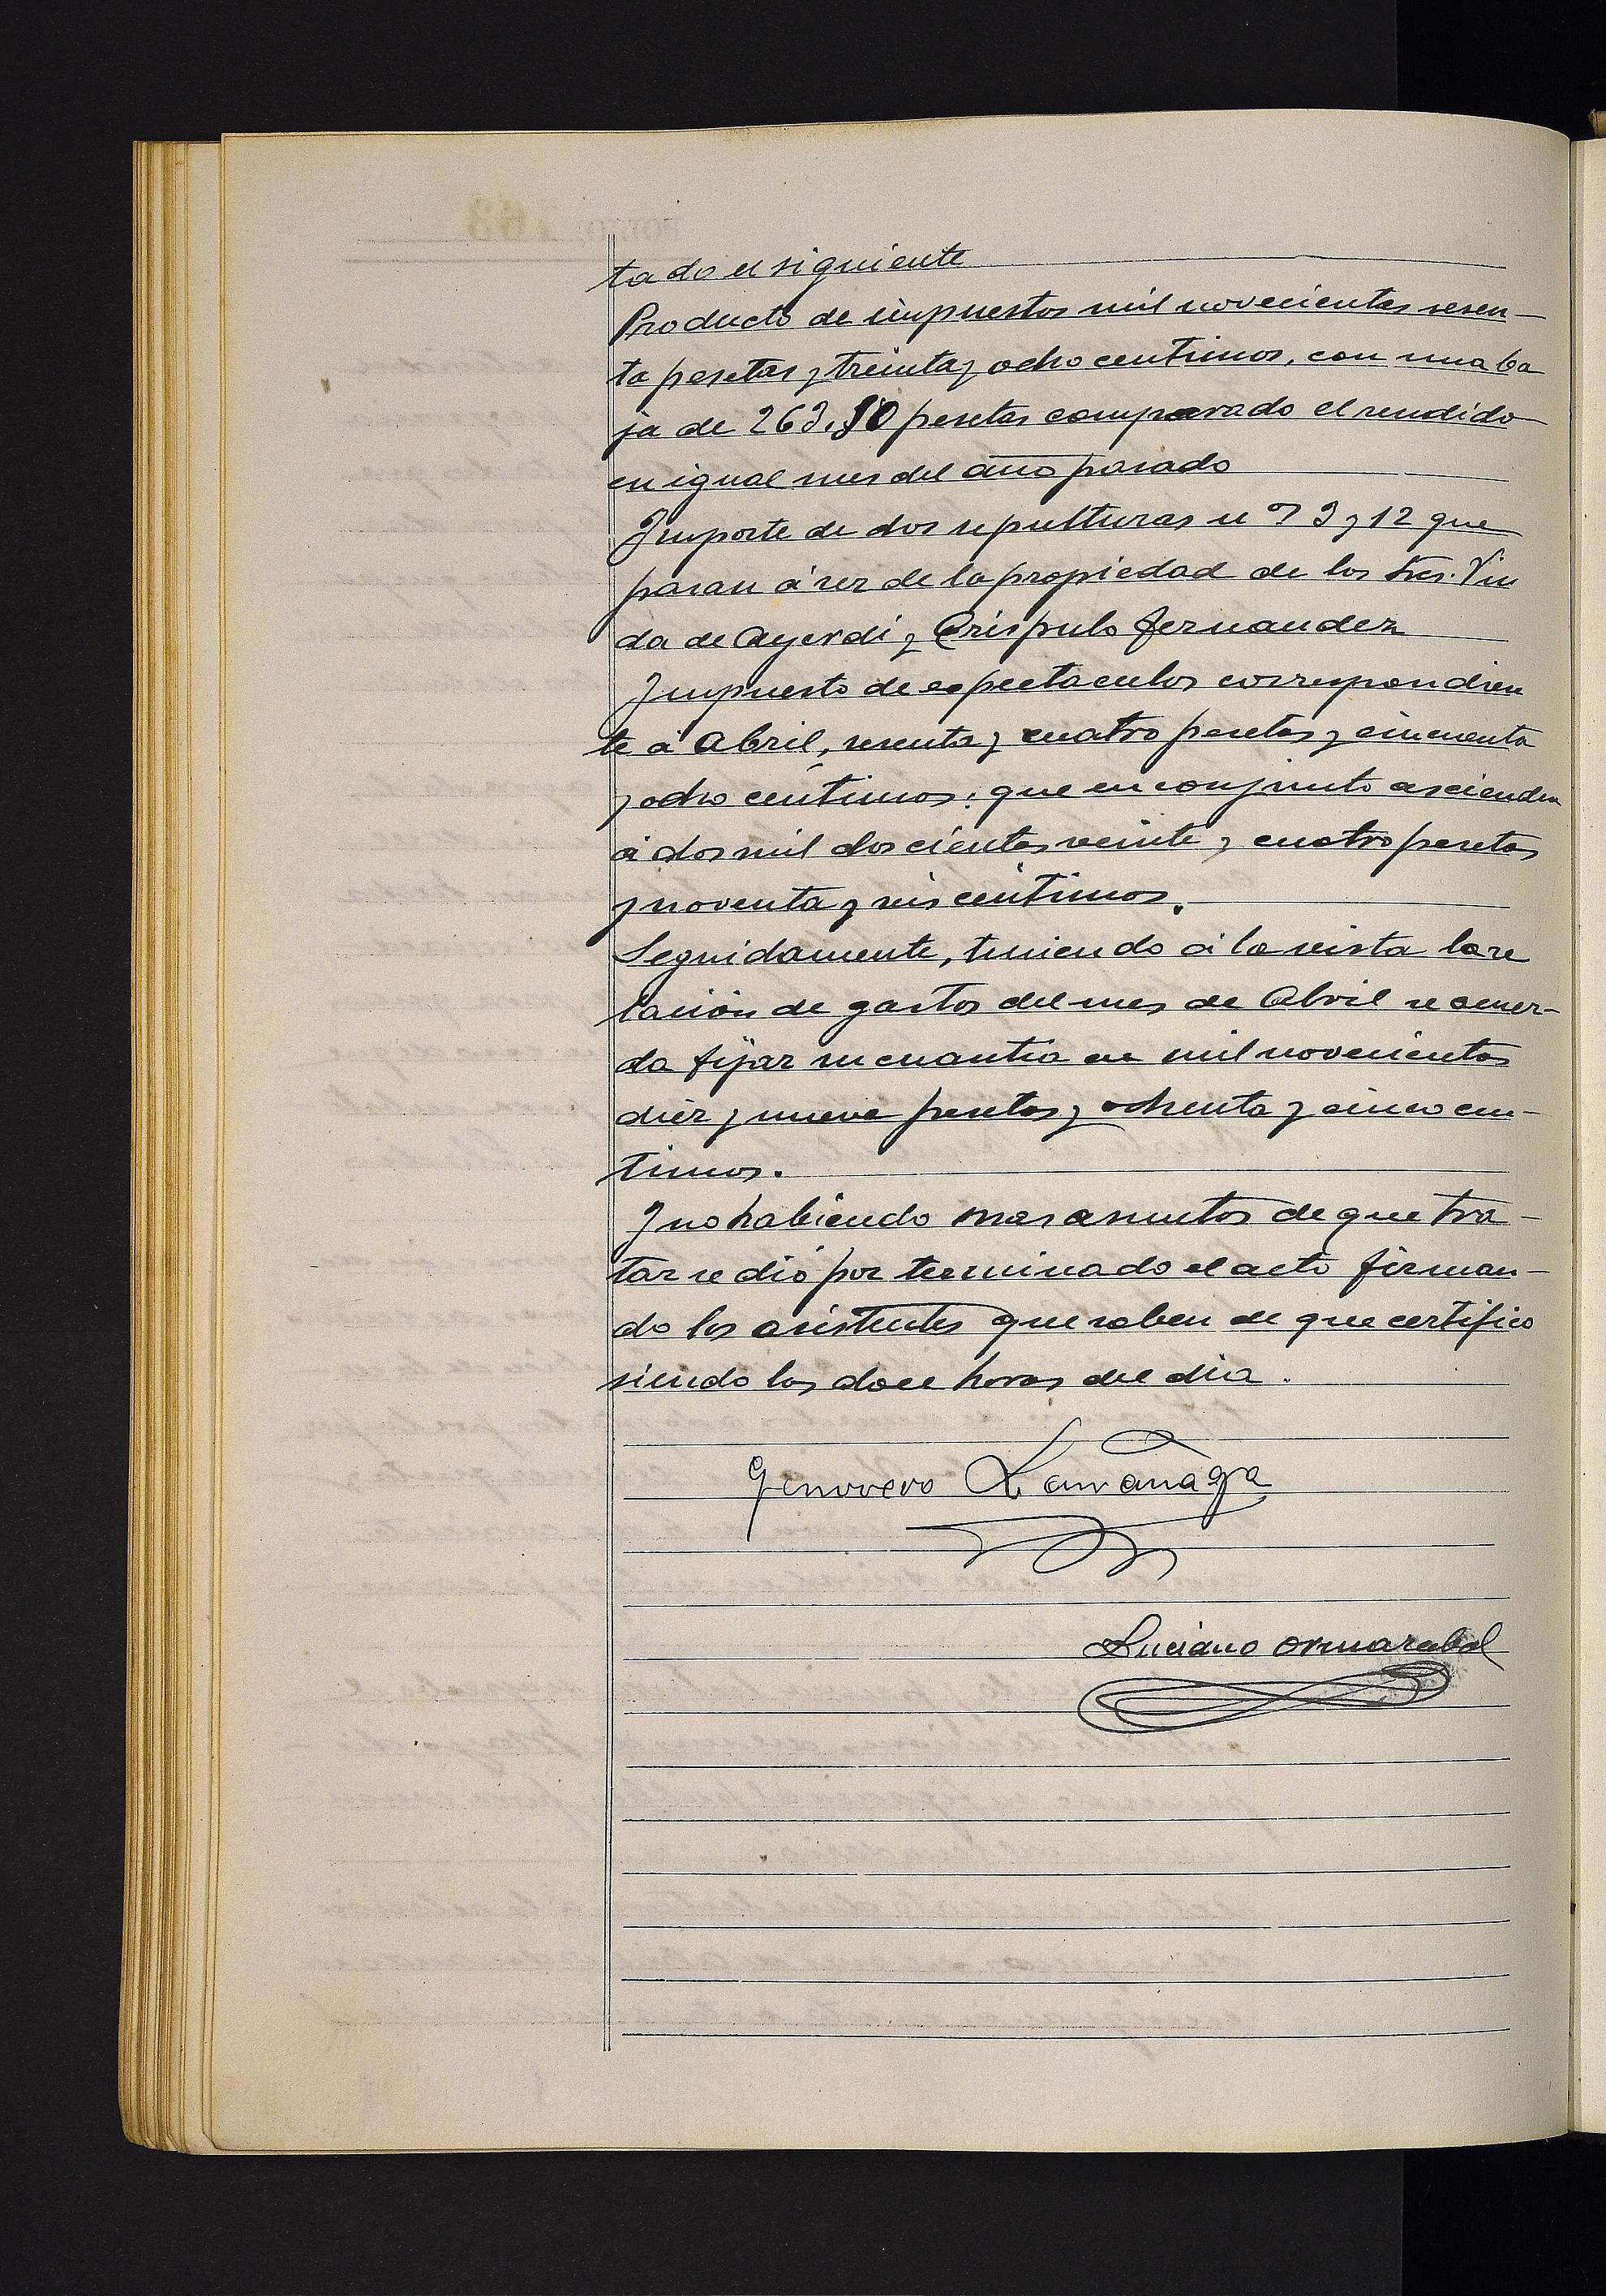 tado el siguiente
Producto de impuestos mil novecientas sesen-
ta pesetas y treinta y ocho centimos, con una ba
ja de 263,90 pesetas comparado el rendido
en igual mes del año pasado
Importe de dos sepulturas nos 9 y 12 que
pasan á ser de la propiedad de los Sres. Viu
da de Ayerdi y Críspulo Fernandez
Impuesto de espectaculos correspondien
te a Abril, sesenta y cuatro pesetas y cincuenta
y ocho centimos; que en conjunto ascienden
á dos mil doscientas veinte y cuatro pesetas
y noventa y seis centimos.
Seguidamente, teniendo á la vista la re
lación de gastos del mes de Abril se acuer-
da fijar su cuantia en mil novecientas
diez y nueve pesetas y ochenta y cinco cen-
timos.
Y no habiendo mas asuntos de que tra-
tar se dió por terminado el acto firman-
do los asistentes que saben de que certifico
siendo las doce horas del dia.
Genovevo Larrañaga
Luciano Ormazabal